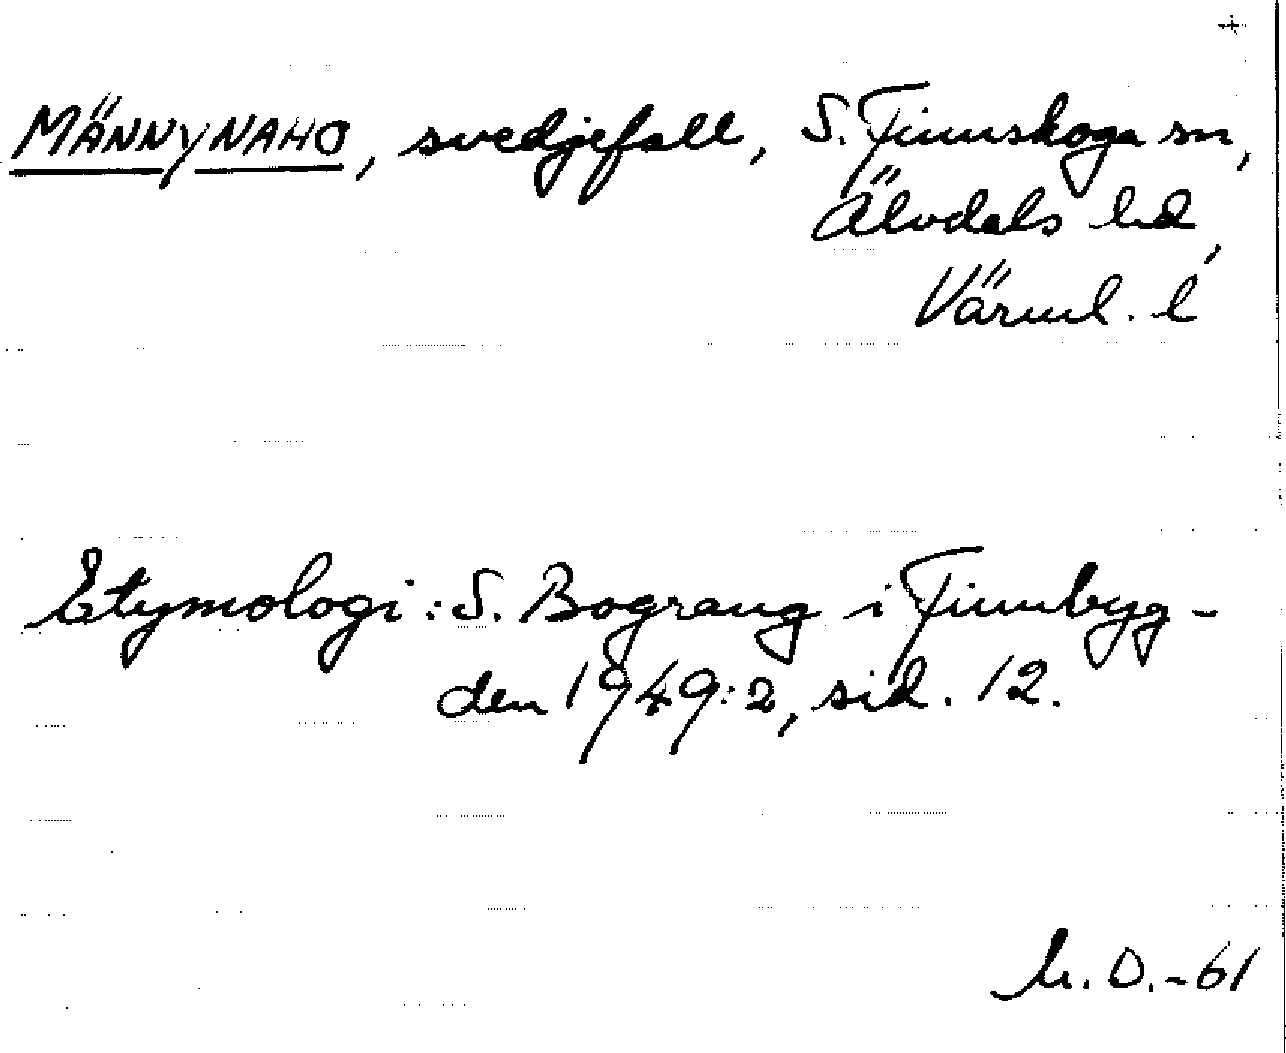 MÄNNYNAHO, svedjefall, S. Finnskoga sn,
Älvdals hd,
Värml. l
Etymologi: S. Bograng i Finnbyg-
den 1949:2, sid. 12.
D.-61